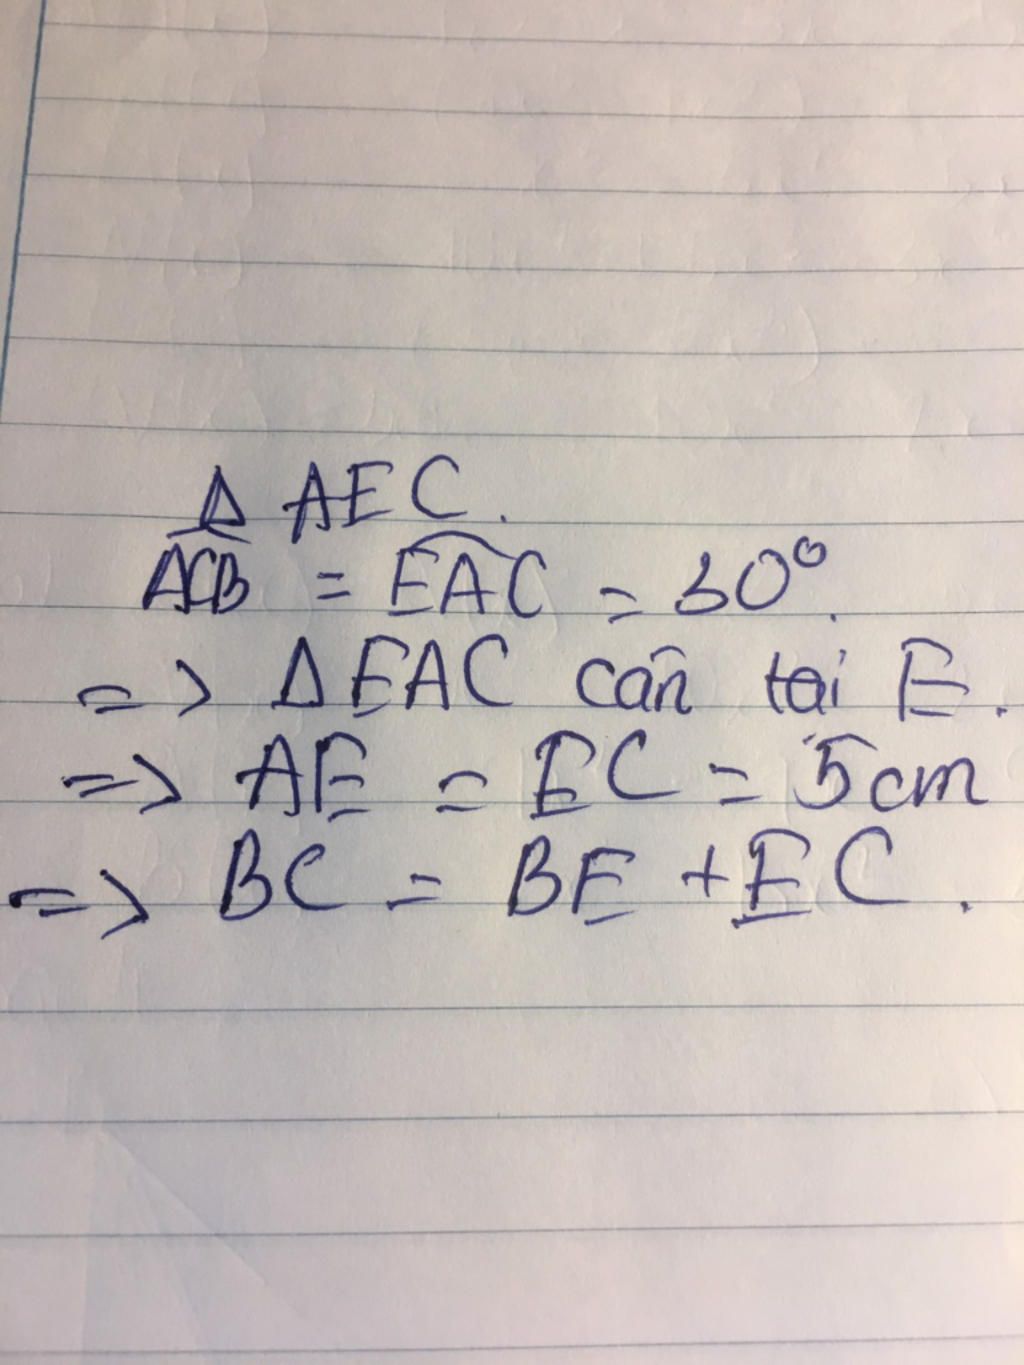 Δ AEC.
ACB = EAC = 30°.
=> Δ EAC cân tại E.
=> AE = EC = 5cm
=> BC = BE + EC.